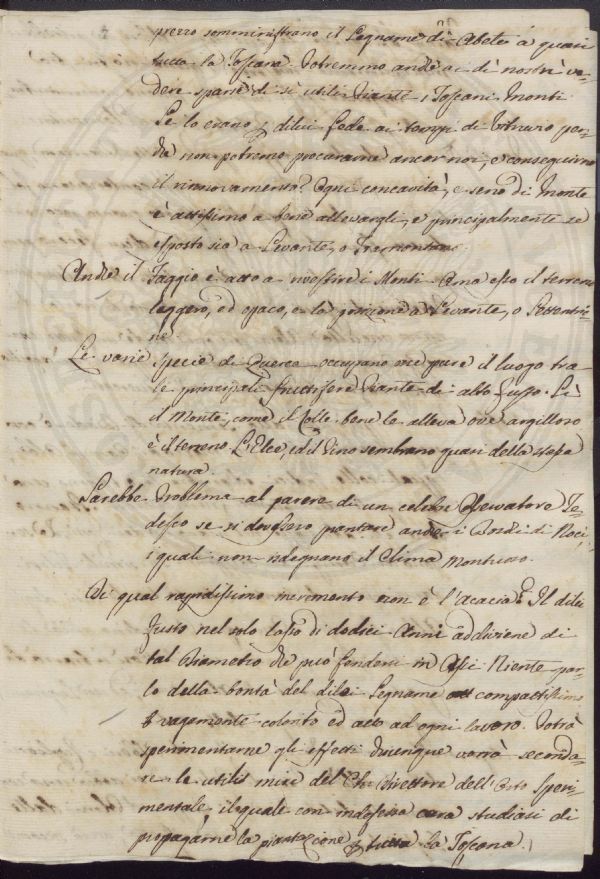 prezzo somministrano il Legname di Abete a quasi
tutta la Toscana. Potremmo anche ai dì nostri ve-
dere sparse di sì utili Piante i Toscani Monti
Se lo erano p di lui fede ai tempi di per-
chè non potremo procurarne ancor noi, e conseguirne
il rinnovamento? Ogni concavità, e seno di Monte
è attissimo a bene allevargli, e principalmente se
esposto sia a Levante, o Tramontana.
Anche il Faggio è atto a rivestire i Monti. Ama esso il terreno
leggero, ed opaco, e la posizione a Levante, o Settentrio-
ne.
Le varie specie di Querce occupano oie pure il luogo tra
le principali fruttifere Piante di alto fusto. Sì
il Monte, come il Colle bene le alleva ove argilloso
è il terreno. L'Elce, ed il Pino sembrano quasi della stessa
natura.
Sarebbe Problema al parere di un celebre Osservatore Te-
desco se si dovessero piantare anche i Boschi di Noci,
i quali non isdegnano il Clima Montuoso.
Di qual rapidissimo incremento non è l'Acacia? Il di lei
fusto nel solo lasso di dodici Anni addiviene di
tal Diametro che può fendersi in Assi. Niente par-
lo della bontà del di lei Legname compattissimo
e vagamente colorito ed atto ad ogni lavoro. Potrà
sperimentarne gli effetti chiunque vorrà seconda-
re le utili mire del Ch. Direttore dell'Orto Speri-
mentale, il quale con indefessa cura studiasi di
propagarne la piantazione p tutta la Toscana.